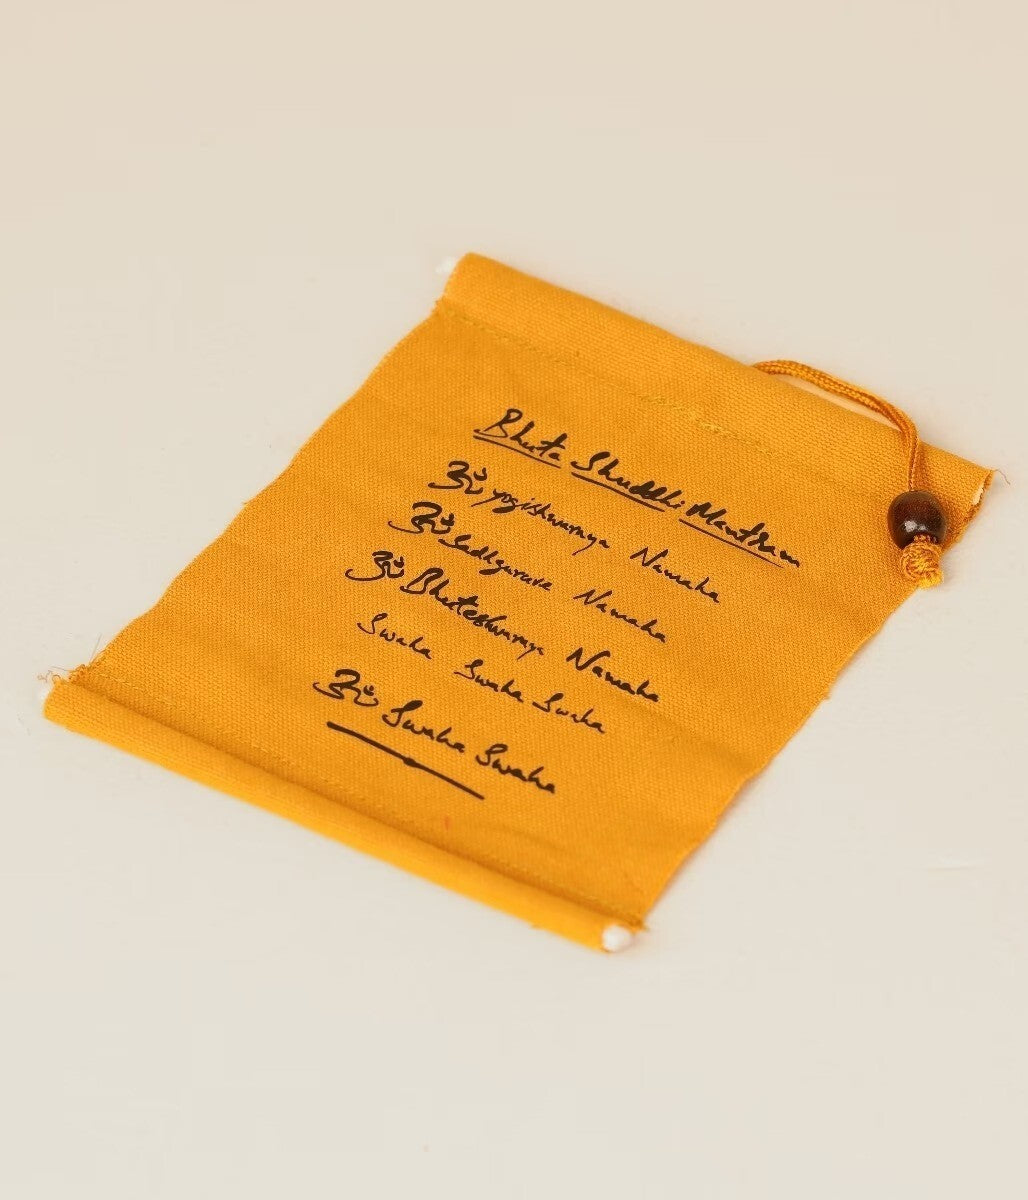 Bhuta Shuddhi Mantram
ॐ yogishwaraya Namaha
ॐ Sadhguruve Namaha
ॐ Bhuteshwaraya Namaha
Swaha Swaha Swaha
ॐ Swaha Swaha